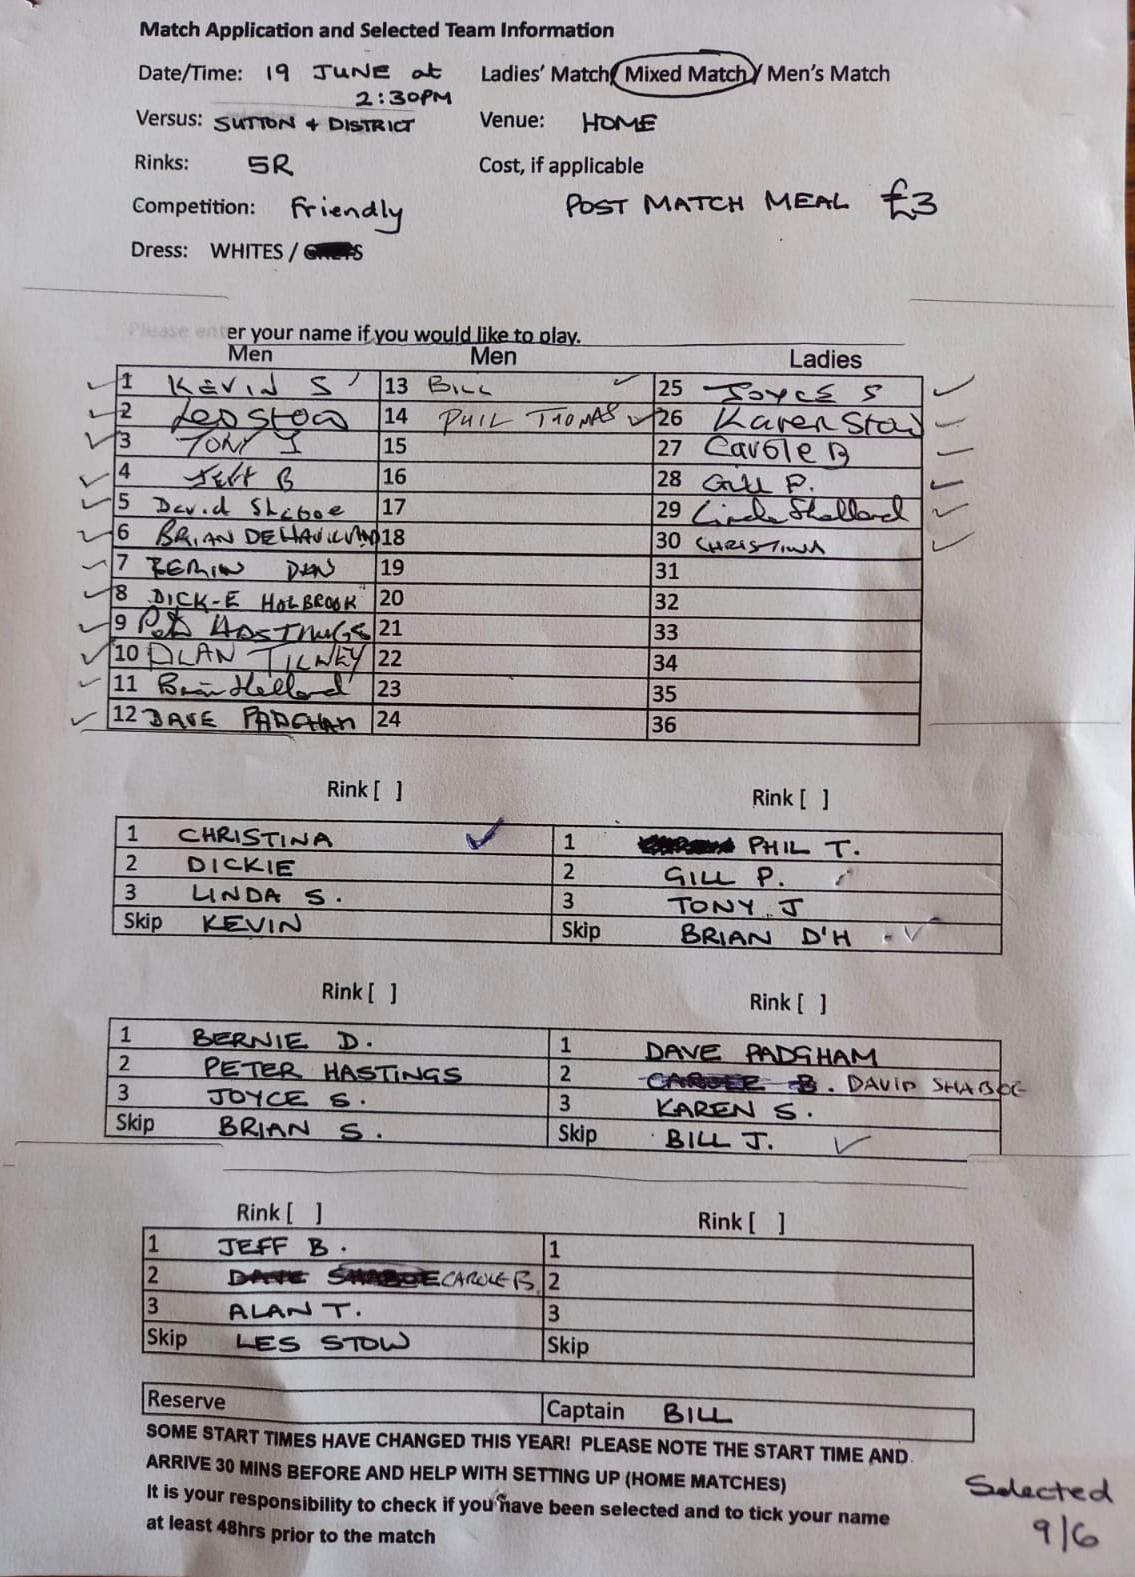 Match Application and Selected Team Information
Date/Time: 19 JUNE at 2:30PM
Ladies' Match/ Mixed Match / Men's Match
Versus: SUTTON + DISTRICT
Venue: HOME
Rinks: 5R
Cost, if applicable
POST MATCH MEAL £3
Competition: Friendly
Dress: WHITES /
Please enter your name if you would like to play.
Men Men Ladies
1 KEVIN S 13 BILL 25 JOYCE S
2 LES STOW 14 PHIL THOMAS 26 Karen Stow
3 TONY J 15 27 Carole B
4 Jeff B 16 28 Gill P.
5 David Shaboe 17 29 Linda Shelland
6 BRIAN DEHAVILLAND 18 30 CHRISTINA
7 19 31
8 DICK-E HOLBROOK 20 32
9 HASTINGS 21 33
10 ALAN TILNEY 22 34
11 23 35
12 DAVE PADGHAM 24 36
Rink [ ] Rink [ ]
1 CHRISTINA 1 PHIL T.
2 DICKIE 2 GILL P.
3 LINDA S. 3 TONY J
Skip KEVIN Skip BRIAN D'H
Rink [ ] Rink [ ]
1 BERNIE D. 1 DAVE PADGHAM
2 PETER HASTINGS 2 DAVID SHABOE
3 JOYCE S. 3 KAREN S.
Skip BRIAN S. Skip BILL J.
Rink [ ] Rink [ ]
1 JEFF B. 1
2 CAROLE B. 2
3 ALAN T. 3
Skip LES STOW Skip
Reserve Captain BILL
SOME START TIMES HAVE CHANGED THIS YEAR! PLEASE NOTE THE START TIME AND
ARRIVE 30 MINS BEFORE AND HELP WITH SETTING UP (HOME MATCHES)
It is your responsibility to check if you have been selected and to tick your name
at least 48hrs prior to the match
Selected
9/6